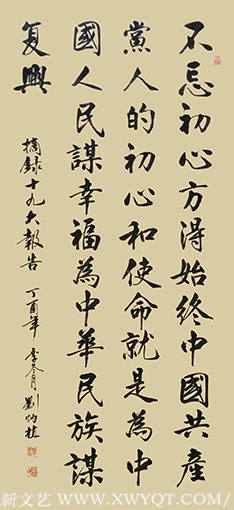 不忘初心方得始终中國共產
黨人的初心和使命就是為中
國人民謀幸福為中華民族謀
复興
摘録十九大報告 丁酉年季冬月劉炳
新文艺 WWW.XWYQT.COM/